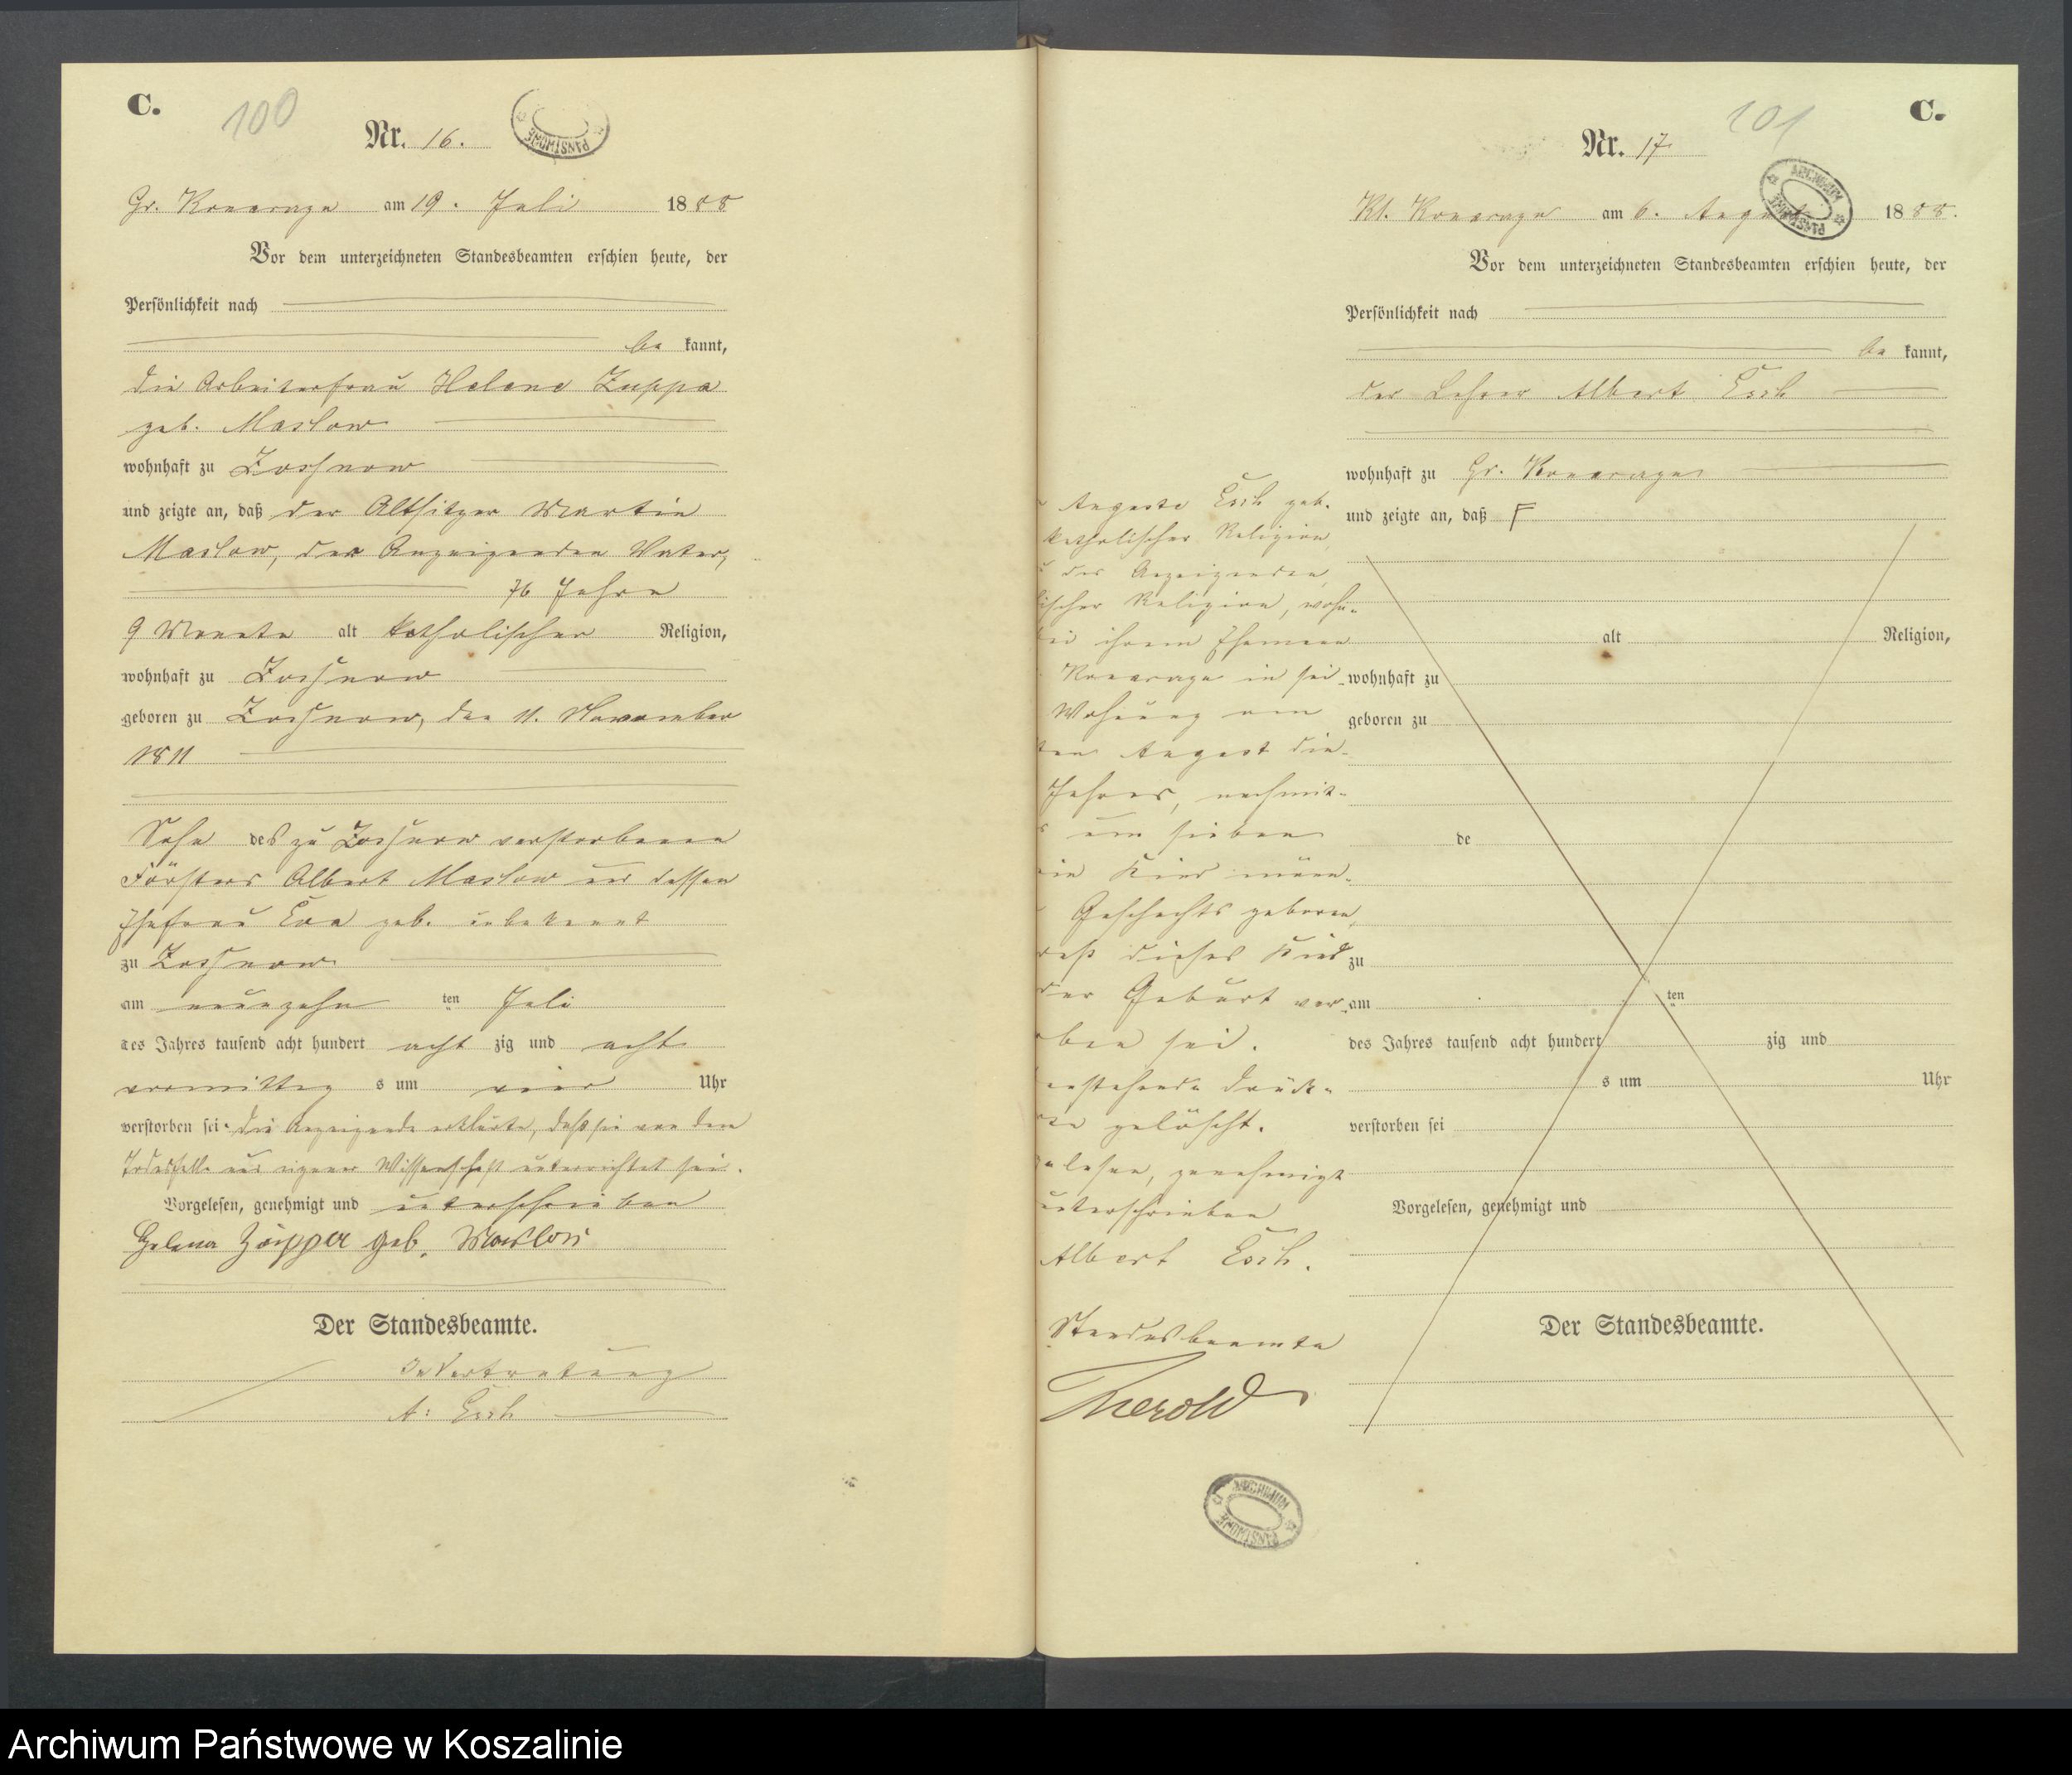 C.
100
Nr. 16.
PAŃSTWOWE
Gr. Konarzyn am 19. Juli 1888
Vor dem unterzeichneten Standesbeamten erschien heute, der
Persönlichkeit nach
be kannt,
die Arbeiterfrau Helene Zuppa
geb. Maslow
wohnhaft zu
und zeigte an, daß der Altsitzer Martin
Maslow, der Anzeigenden Vater,
76 Jahre
9 Monate alt katholischer Religion,
wohnhaft zu
geboren zu den 11. November
1811
Sohn des zu verstorbenen
Försters Albert Maslow und dessen
Ehefrau Eva geb. unbekannt
zu
am neunzehn ten Juli
des Jahres tausend acht hundert acht zig und acht
vormittag s um vier Uhr
verstorben sei. Die Anzeigende erklärte, daß sie von dem
Todesfalle aus eigener Wissenschaft unterrichtet sei.
Vorgelesen, genehmigt und unterschrieben
Helena geb. Maslow
Der Standesbeamte.
In Vertretung
A. Esch
C.
101
Nr. 17
ARCHIWUM PAŃSTWOWE
Kl. Konarzyn am 6. August 1888.
Vor dem unterzeichneten Standesbeamten erschien heute, der
Persönlichkeit nach
be kannt,
der Lehrer Albert Esch
wohnhaft zu Gr. Konarzyn
und zeigte an, daß F
alt Religion,
wohnhaft zu
geboren zu
de
zu
am ten
des Jahres tausend acht hundert zig und
s um Uhr
verstorben sei
Vorgelesen, genehmigt und
Der Standesbeamte.
Auguste Esch geb.
katholischer Religion,
des Anzeigenden,
lischer Religion, wohn-
bei ihrem Ehemann
Konarzyn in sei-
Wohnung am
ten August die-
Jahres, nachmit-
s um sieben
ein Kind männ-
Geschlechts geboren,
daß dieses Kind
der Geburt ver-
ben sei.
enstehende Druck-
te gelöscht.
elesen, genehmigt
unterschrieben
Albert Esch.
Standesbeamte
ARCHIWUM PAŃSTWOWE
Archiwum Państwowe w Koszalinie